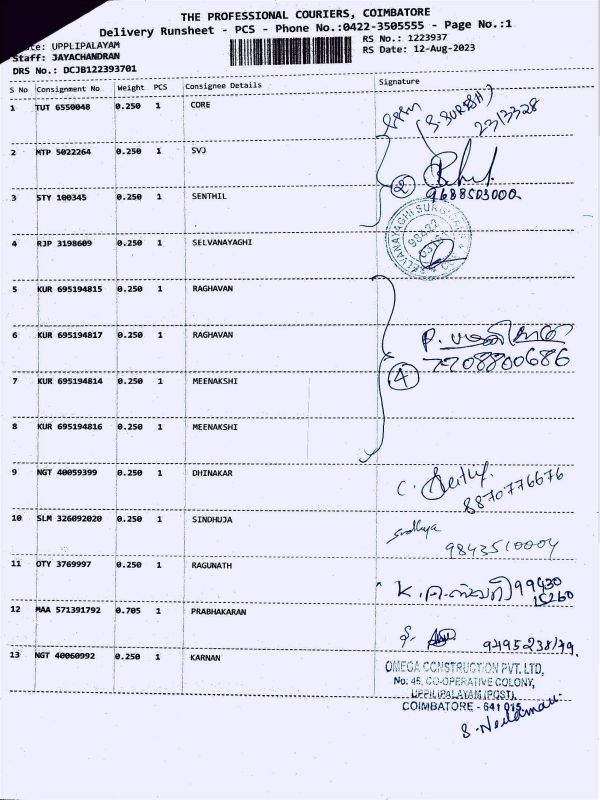 THE PROFESSIONAL COURIERS, COIMBATORE
Delivery Runsheet - PCS - Phone No.:0422-3505555 - Page No.:1
UPPLIPALAYAM
RS No.: 1223937
Staff: JAYACHANDRAN
RS Date: 12-Aug-2023
DRS No.: DCJB122393701
S No Consignment No Weight PCS Consignee Details Signature
1 TUT 6550048 0.250 1 CORE
(S. SURESH)
23/3328
2 MTP 5022264 0.250 1 SVJ
2
9688503000
3 STY 100345 0.250 1 SENTHIL
4 RJP 3198609 0.250 1 SELVANAYAGHI
5 KUR 695194815 0.250 1 RAGHAVAN
6 KUR 695194817 0.250 1 RAGHAVAN
P.
7708800686
7 KUR 695194814 0.250 1 MEENAKSHI
4
8 KUR 695194816 0.250 1 MEENAKSHI
9 NGT 40059399 0.250 1 DHINAKAR
C.
8870776676
10 SLM 326092020 0.250 1 SINDHUJA
sindhuja
9843510004
11 OTY 3769997 0.250 1 RAGUNATH
99430
15260
12 MAA 571391792 0.705 1 PRABHAKARAN
9495238179.
13 NGT 40060992 0.250 1 KARNAN
OMEGA CONSTRUCTION PVT. LTD,
No: 45, CO-OPERATIVE COLONY,
UPPILIPALAYAM (POST),
COIMBATORE - 641 015.